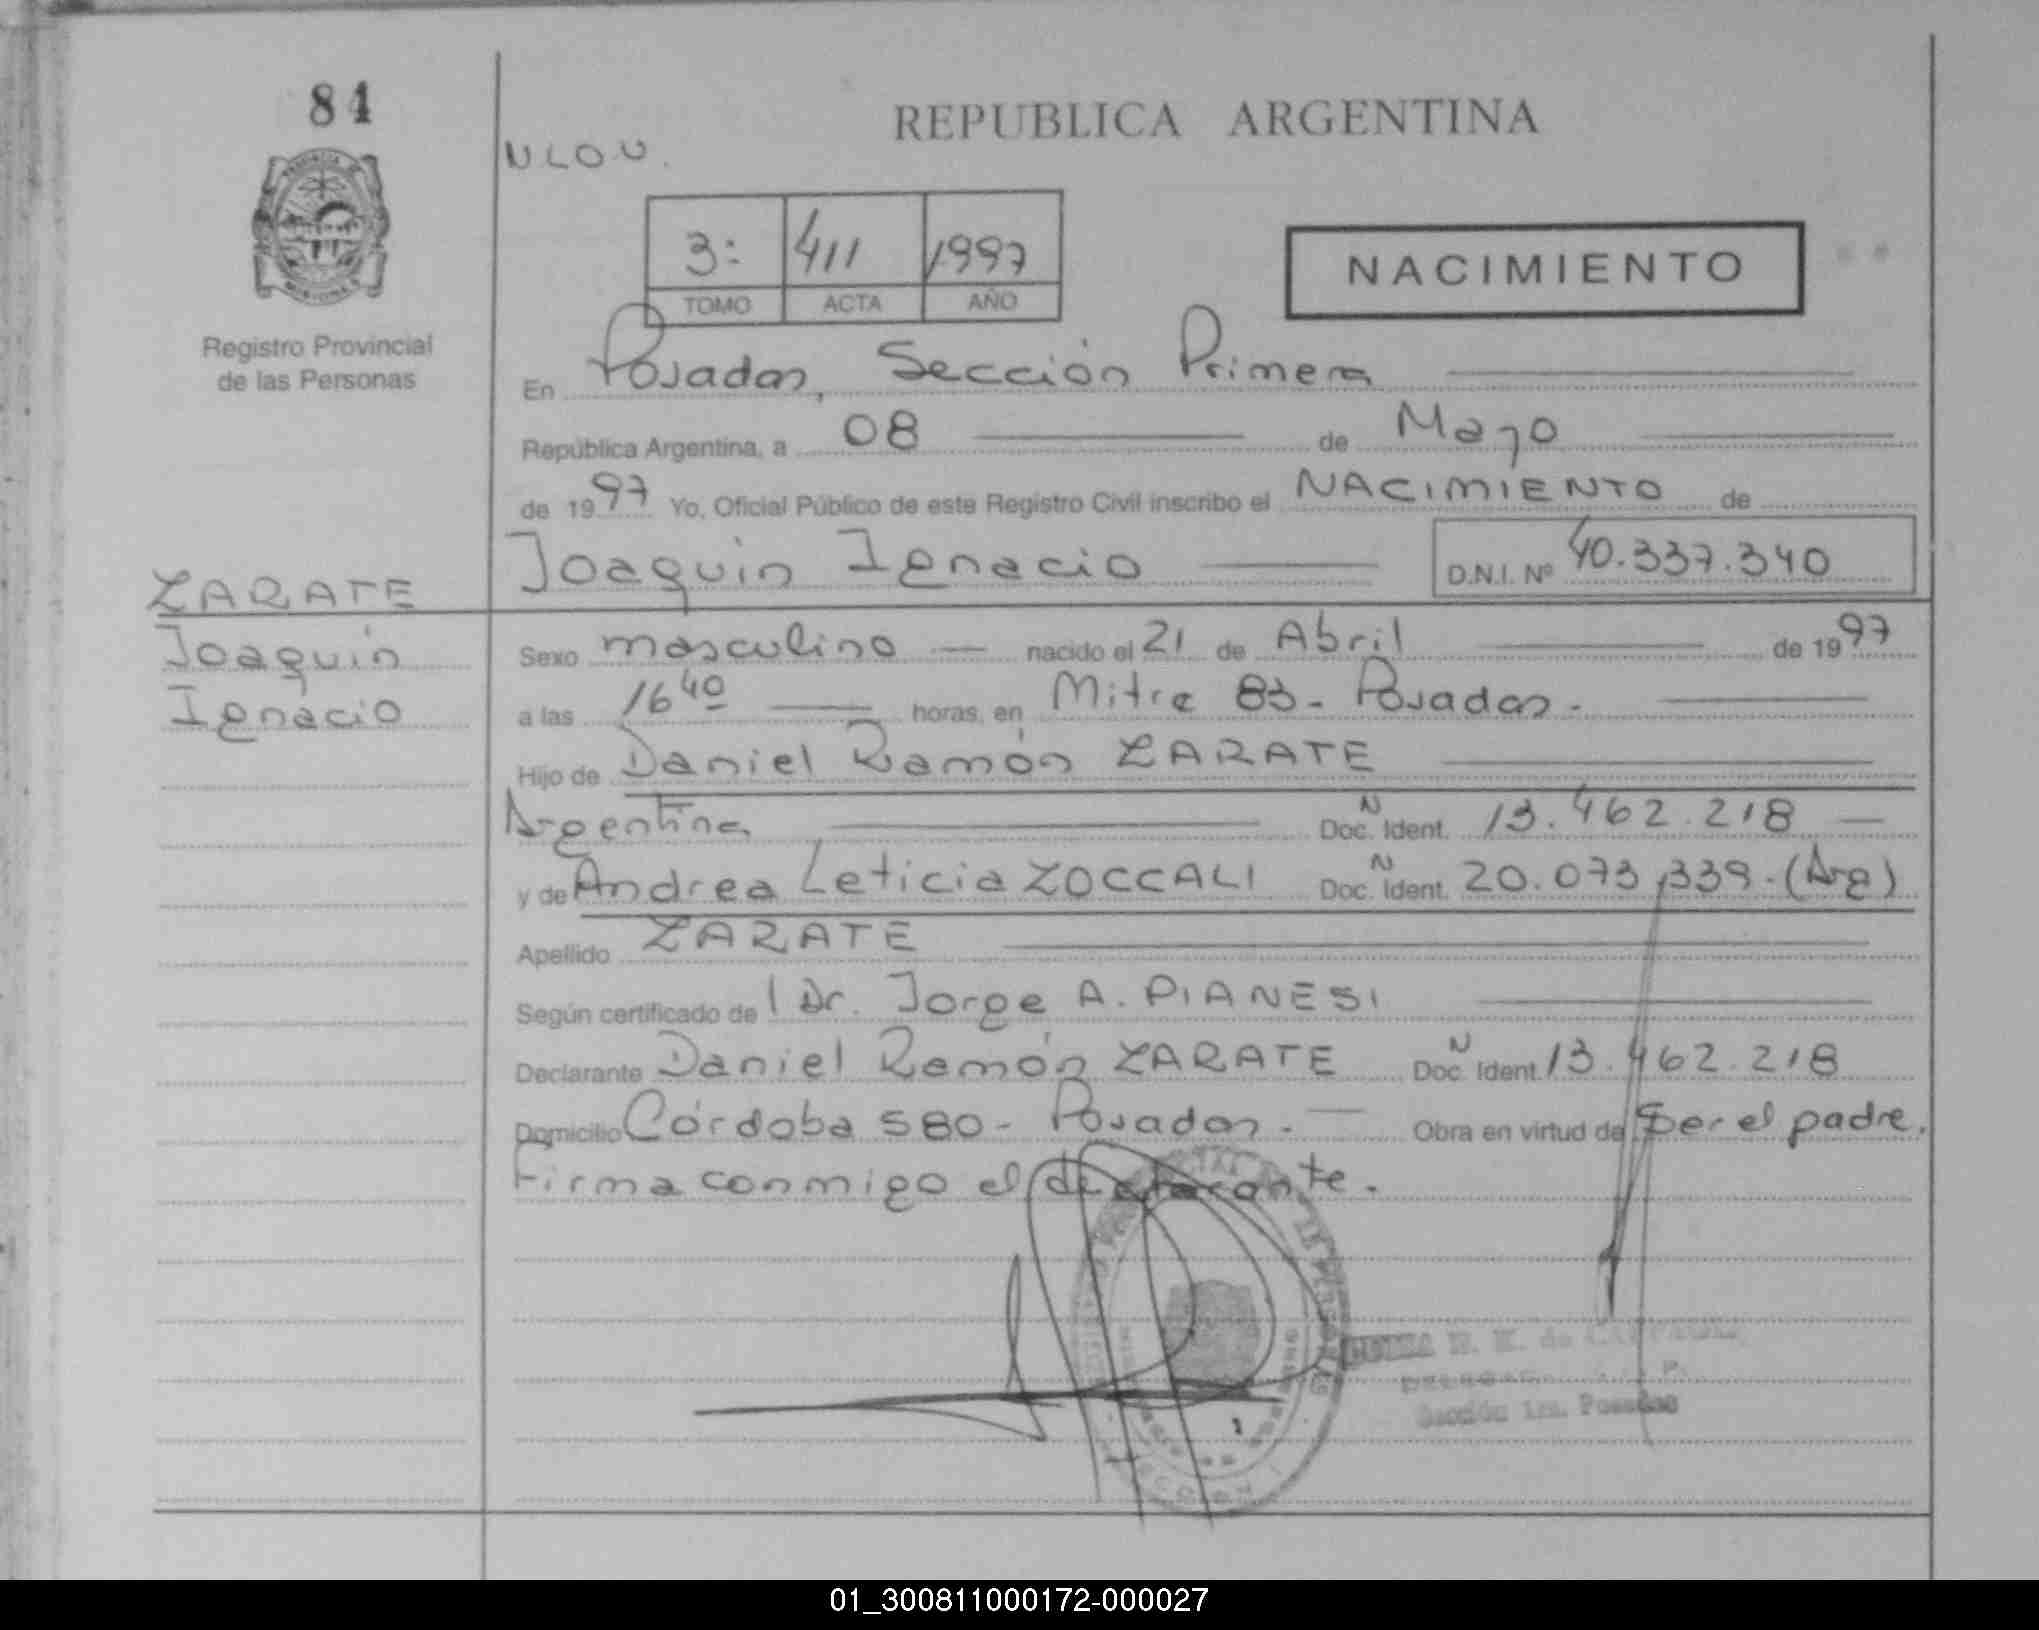 84
REPUBLICA ARGENTINA
N L O U.
3: 411 1997
TOMO ACTA AÑO
NACIMIENTO
Registro Provincial
de las Personas
En Posadas, Sección Primera
República Argentina, a 08 de Mayo
de 1997 Yo, Oficial Público de este Registro Civil inscribo el NACIMIENTO de
Joaquin Ignacio D.N.I. Nº 40.337.340
ZARATE
Joaquin
Ignacio
Sexo masculino nacido el 21 de Abril de 1997
a las 16 40 horas, en Mitre 83 - Posadas.
Hijo de Daniel Ramón ZARATE
Argentina Doc. N Ident. 13.462.218
y de Andrea Leticia ZOCCALI Doc. N Ident. 20.073.339. (Arg)
Apellido ZARATE
Según certificado de l Dr. Jorge A. PIANESI
Declarante Daniel Ramón ZARATE Doc. N Ident. 13.462.218
Domicilio Córdoba 580 - Posadas. Obra en virtud de Ser el padre.
Firma conmigo el declarante.
Sección 1ra. Posadas
01_300811000172-000027